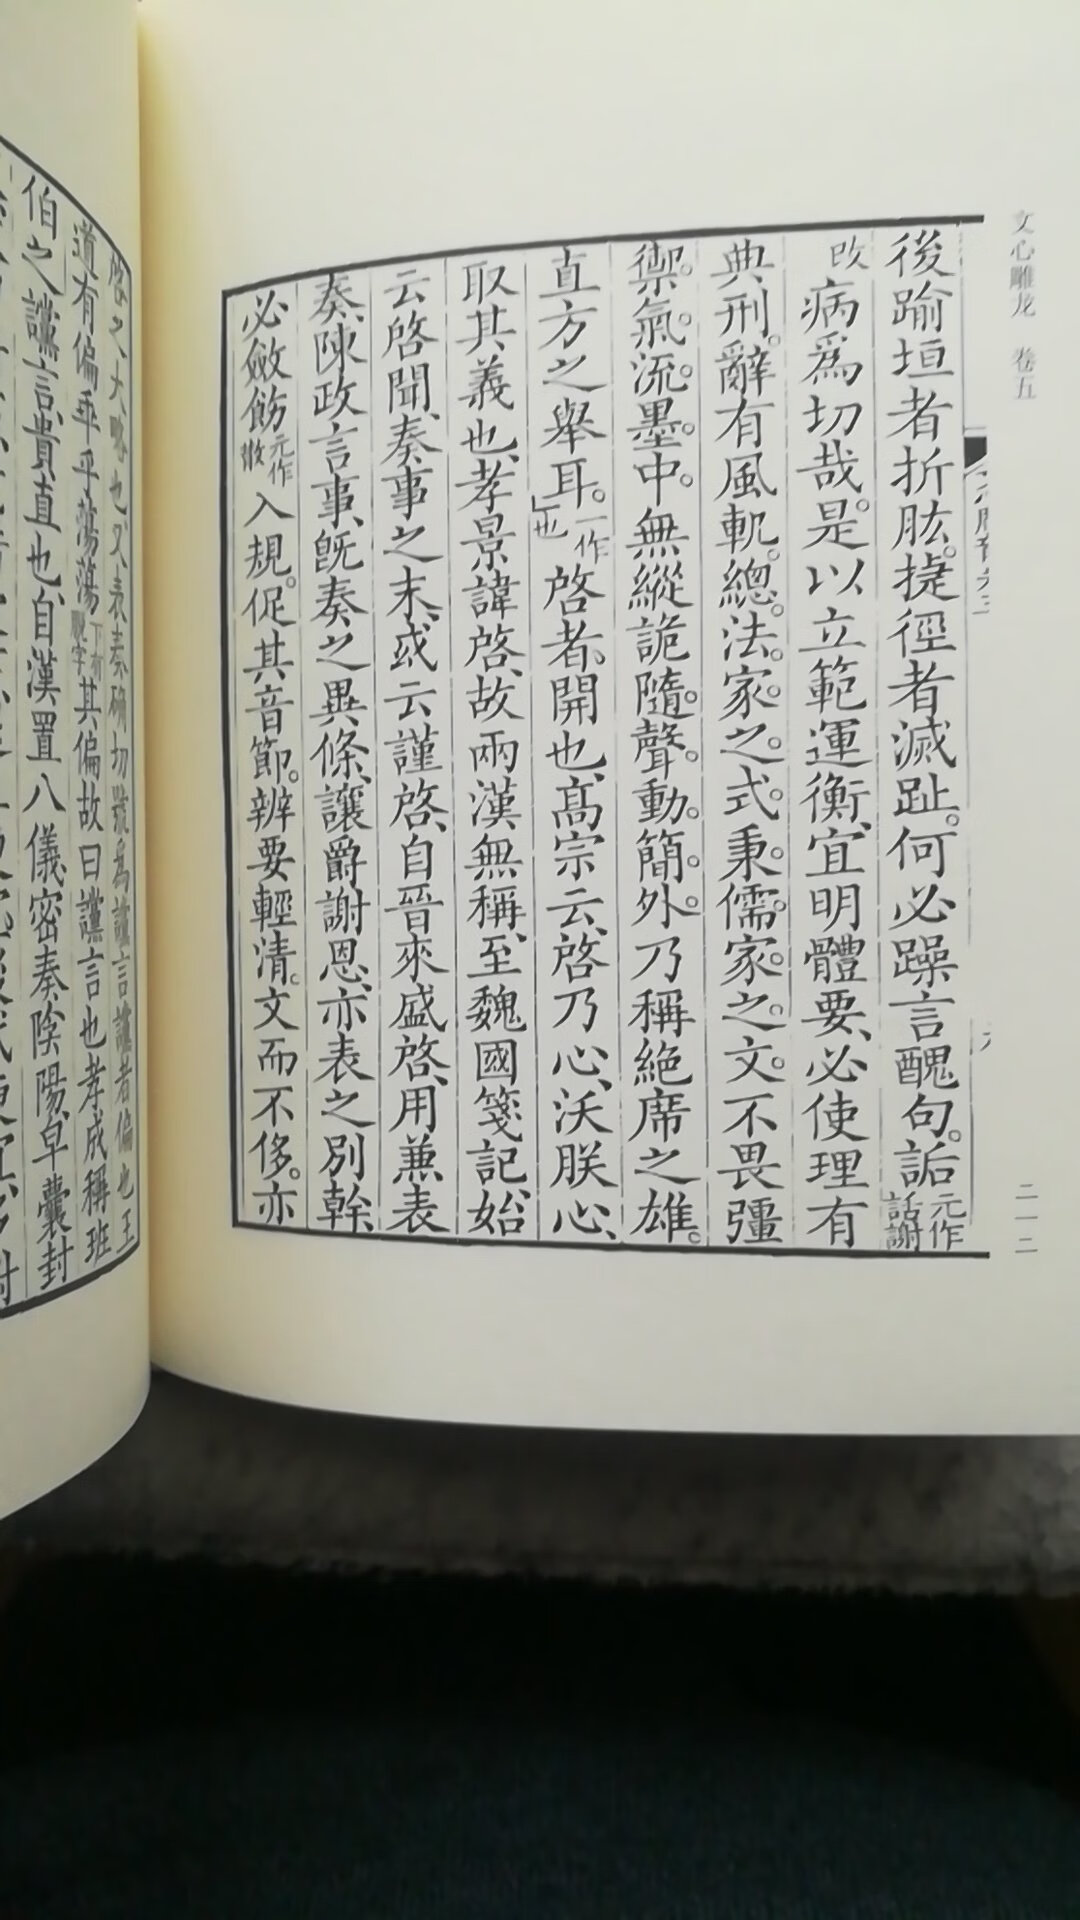 文心雕龙 卷五
二一二
後踰垣者折肱。捷徑者滅趾。何必躁言醜句。詬元作話謝
改病爲切哉。是以立範運衡、宜明體要、必使理有
典刑。辭有風軌。總。法。家。之。式。秉。儒。家。之。文。不畏彊
禦。氣。流。墨。中。無縱詭隨。聲。動。簡。外。乃稱絶席之雄。
直方之舉耳。一作也啓者、開也、髙宗云、啓乃心、沃朕心、
取其義也、孝景諱啓、故兩漢無稱、至魏國箋記、始
云啓聞、奏事之末、或云謹啓、自晉來盛啓、用兼表
奏、陳政言事、旣奏之異條、讓爵謝恩、亦表之別幹、
必斂飭元作散入規。促其音節。辨要輕清。文而不侈。亦
啓之大略也、又、表奏确切號爲讜言讜者偏也王
道有偏乖乎蕩蕩其偏故曰讜言也孝成稱班
伯之讜言、貴直也、自漢置八儀、密奏陰陽、皁囊封